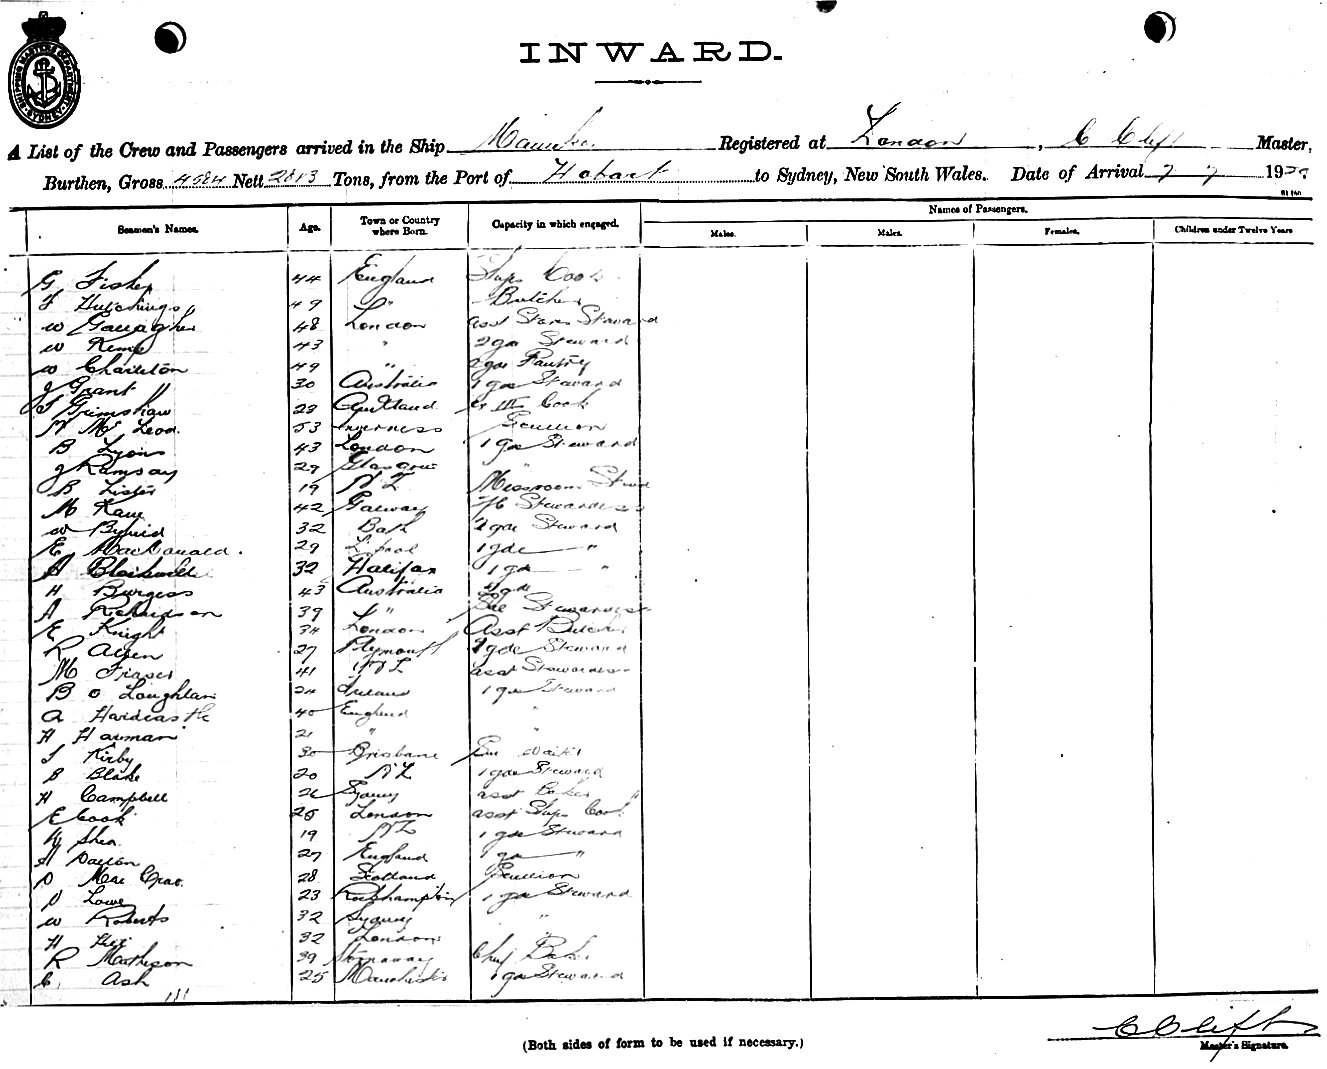 SHIPPING MASTERS DEPARTMENT SYDNEY
INWARD.
A List of the Crew and Passengers arrived in the Ship Registered at London, C Clift Master,
Burthen, Gross 4584 Nett 2813 Tons, from the Port of Hobart to Sydney, New South Wales. Date of Arrival 7 7 19
Names of Passengers.
Seamen's Names. Age. Town or Country where Born. Capacity in which engaged. Males. Males. Females. Children under Twelve Years
G Fisher 44 England Ships Cook
F Hutchings 49 " Butcher
W Gallagher 48 London asst Stores Steward
W Kemp 43 " 2 gde Steward
W Charlton 49 " 2 gde Pantry
J Grant 30 Australia 1 gde Steward
T Grimshaw 23 Auckland III Cook
N McLeod 53 Inverness Scullion
B Lyons 43 London 1 gde Steward
J Ramsay 29 Glasgow
B Lister 19 NZ Messroom Steward
M Kane 42 Galway Stewardess
W 32 Bath 2 gde Steward
E MacDonald. 29 L'pool 1 gde — "
A 32 Halifax 1 gde — "
H Burgess 43 Australia gde
A Richardson 39 " Stewardess
E Knight 34 London Asst Butcher
R Allen 27 Plymouth 2 gde Steward
M Fraser 41 NZ asst Stewardess
B O Loughlan 24 Ireland 1 gde Steward
A Hardcastle 40 England "
H Harman 21 " "
T Kirby 30 Brisbane Waiter
B Blake 20 NZ 1 gde Steward
H Campbell 26 Sydney asst Baker
E Cook 25 London asst Ships Cook
Shea 19 NZ 1 gde Steward
A Dalton 27 England 1 gde — "
D Mac 28 Scotland Scullion
D Lowe 23 Rockhampton 1 gde Steward
W Roberts 32 Sydney "
H 32 London
R Matheson 39 Stornaway Chief Baker
C. Ash 25 Manchester 1 gde Steward
C Clift
(Both sides of form to be used if necessary.) Master's Signature.